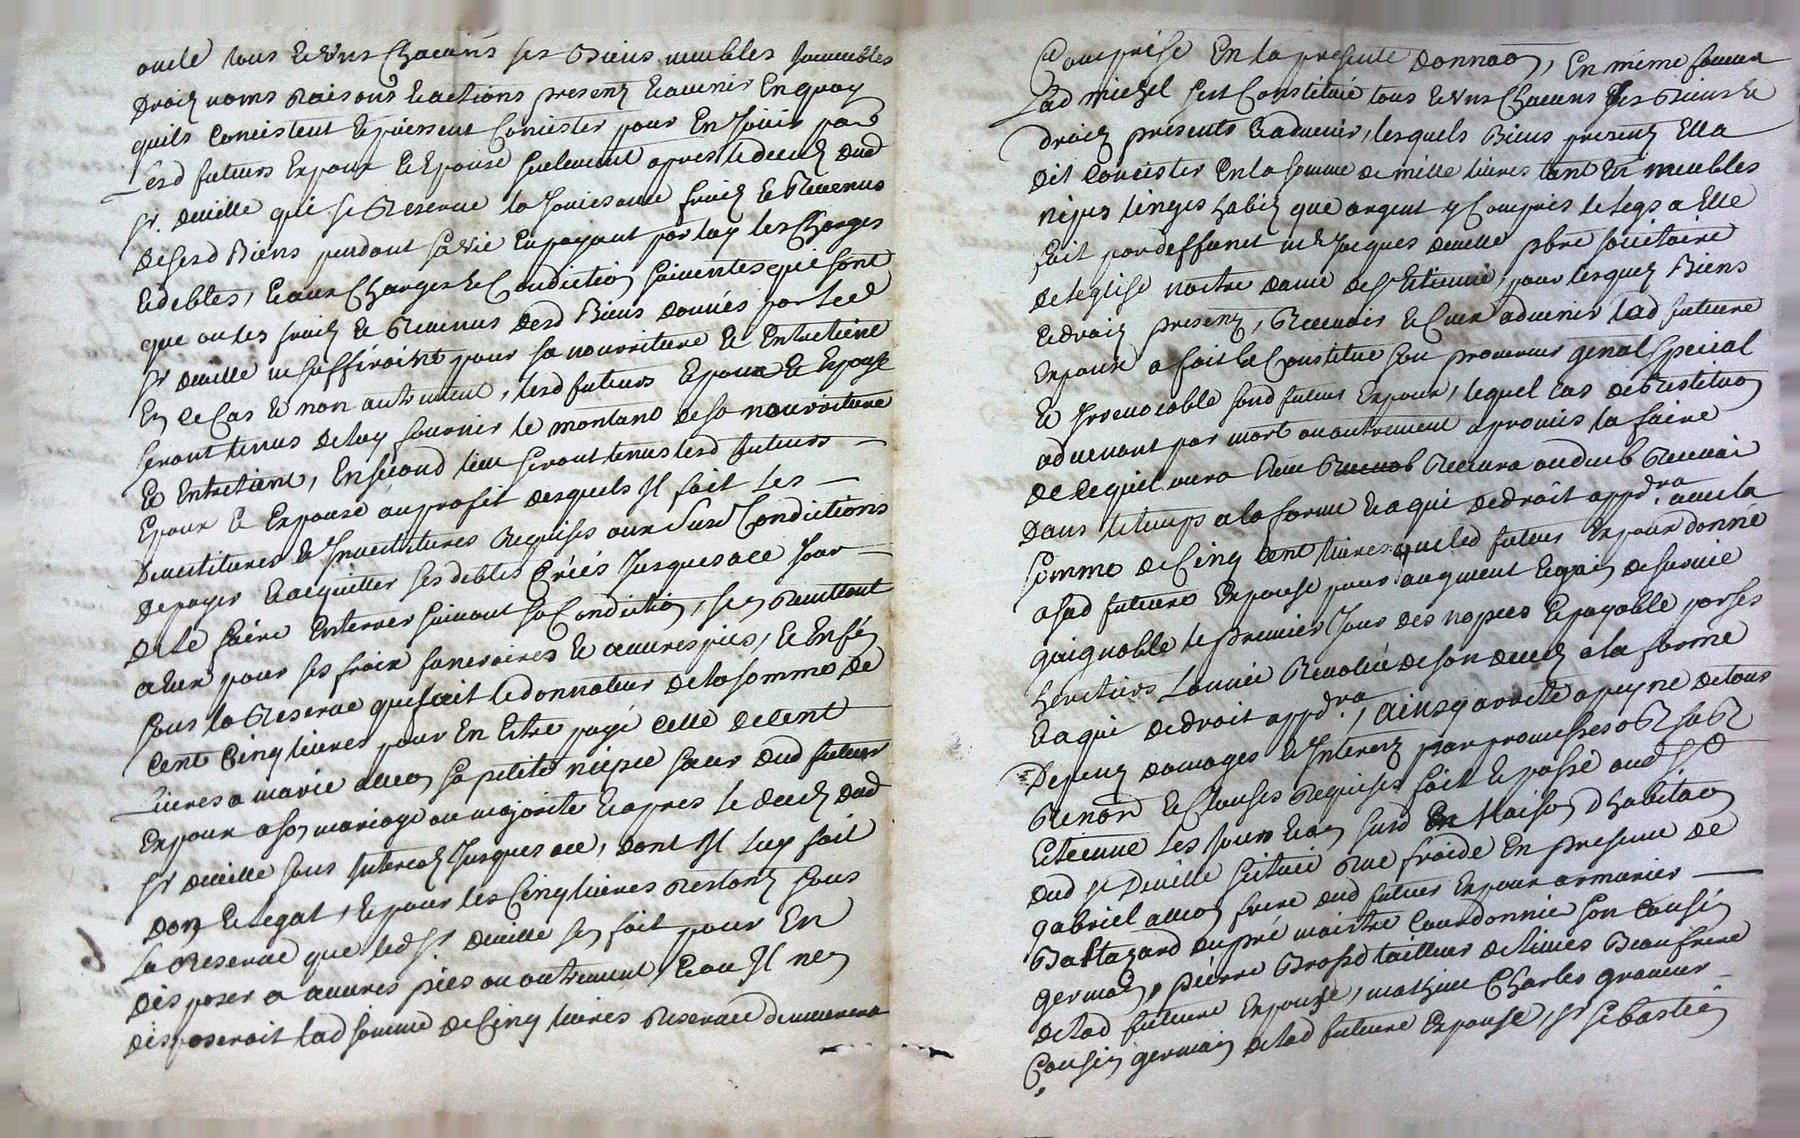 oncle tous et uns chacuns ses Biens meubles Immeubles
Droits noms Raisons et actions presents et avenir En quoy
quils Concistent et puissent Concister pour En Jouir par
lesd futurs Expoux et Expouse seulement apres le deceds dud
sr. deville qui se Reserve la Jouissance fruits et Revenus
desesd Biens pendant sa vie En payant par luy les Charges
et debtes, et aux Charges et Condiction suiventes qui sont
que ou les fruits et Revenus desd Biens donnés par led
sr deville ne suffiroint pour sa nourriture et Entretiene
En ce Cas et non autrement, lesd futurs Epoux et Expouse
seront tenus de luy fournir le montant de sa nourriture
et Entretient, En second lieu seront tenus lesd futurs
Epoux et Expouse au profit desquels Il fait les
Devestitures et Investitures Requises aux Susd Condictions
de payer et acquitter ses debtes Créés Jusques a ce Jour
de le faire Enterrer suivant sa Condiction, sen Remettant
a Eux pour ses fraix funeraires et œuvres pies, et Enfin
sous la Reserve que fait le donnateur de la somme de
Cent Cinq livres pour En Estre payé Celle de Cent
Livres a marie sa petite niepce sœur dud futur
Expoux a son mariage ou majorité et apres le deceds dud
sr deville sans Interest Jusques a ce, dont Il luy fait
Don et legat, et pour les Cinq livres Restants sous
La Reserve que led sr. deville sen fait pour En
disposer a œuvres pies ou autrement, et ou Il nen
disposeroit lad somme de Cinq livres Reservée demeurera
Comprise En la presente Donnaon, En même faveur
Lad miegel sest Constituée tous et uns Chacuns ses Biens et
droits presents et advenir, lesquels Biens presents Ella
dit Concister En la somme de mille livres tant En meubles
nipes linges habits que argent y Compris le legs a Elle
fait par deffunct me Jacques deville pbre sociétaire
de leglise nostre dame de st Etienne, pour lesquels Biens
et droits presents, Recevoir et Ceux advenir lad future
Expouse a fait et Constitué son procureur genal special
et Irrevocable sond futur Expoux, lequel cas de Restituon
advenant par mort ou autrement a promis la faire
de ce quil aura Receu Recevra ou deub Recevoir
Dans le temps a la forme et a qui de droit appdra. avec la
somme de Cinq cent livres que led futur Expoux donne
a sad future Expouse pour augment et gain de survie
gaignable le premier Jour des nopces et payable par ses
heretiers Lannée Revolue de son deceds a la forme
et a qui de droit appdra, ainsy arresté a peyne de tous
Depens domages et Interests par promesses
Renon et Clauses Requises fait et passé aud St
Etienne Les Jour et an susd Maison dhabitaon
dud sr Deville scituée Rue froide En presence de
gabriel frere dud futur Expoux armurier
Baltazard dupré maitre Cordonnie son Cousin
germain, pierre Brossd tailleur de limes Beaufrere
de lad future Expouse, mathieu Charles graveur
Cousin germain de lad future Expouse, sr sebastien